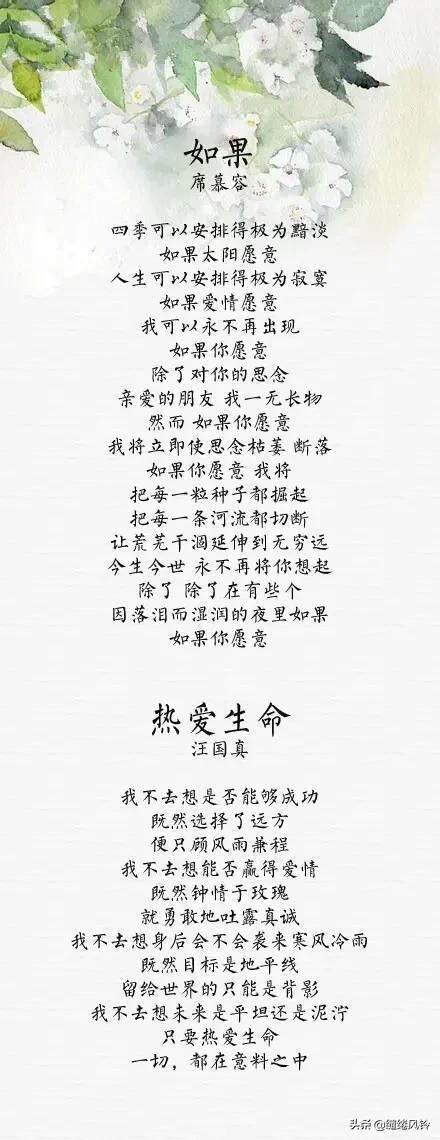 如果
席慕容
四季可以安排得极为黯淡
如果太阳愿意
人生可以安排得极为寂寞
如果爱情愿意
我可以永不再出现
如果你愿意
除了对你的思念
亲爱的朋友 我一无长物
然而 如果你愿意
我将立即使思念枯萎 断落
如果你愿意 我将
把每一粒种子都掘起
把每一条河流都切断
让荒芜干涸延伸到无穷远
今生今世 永不再将你想起
除了 除了在有些个
因落泪而湿润的夜里如果
如果你愿意
热爱生命
汪国真
我不去想是否能够成功
既然选择了远方
便只顾风雨兼程
我不去想能否赢得爱情
既然钟情于玫瑰
就勇敢地吐露真诚
我不去想身后会不会袭来寒风冷雨
既然目标是地平线
留给世界的只能是背影
我不去想未来是平坦还是泥泞
只要热爱生命
一切，都在意料之中
头条 @缱绻风铃